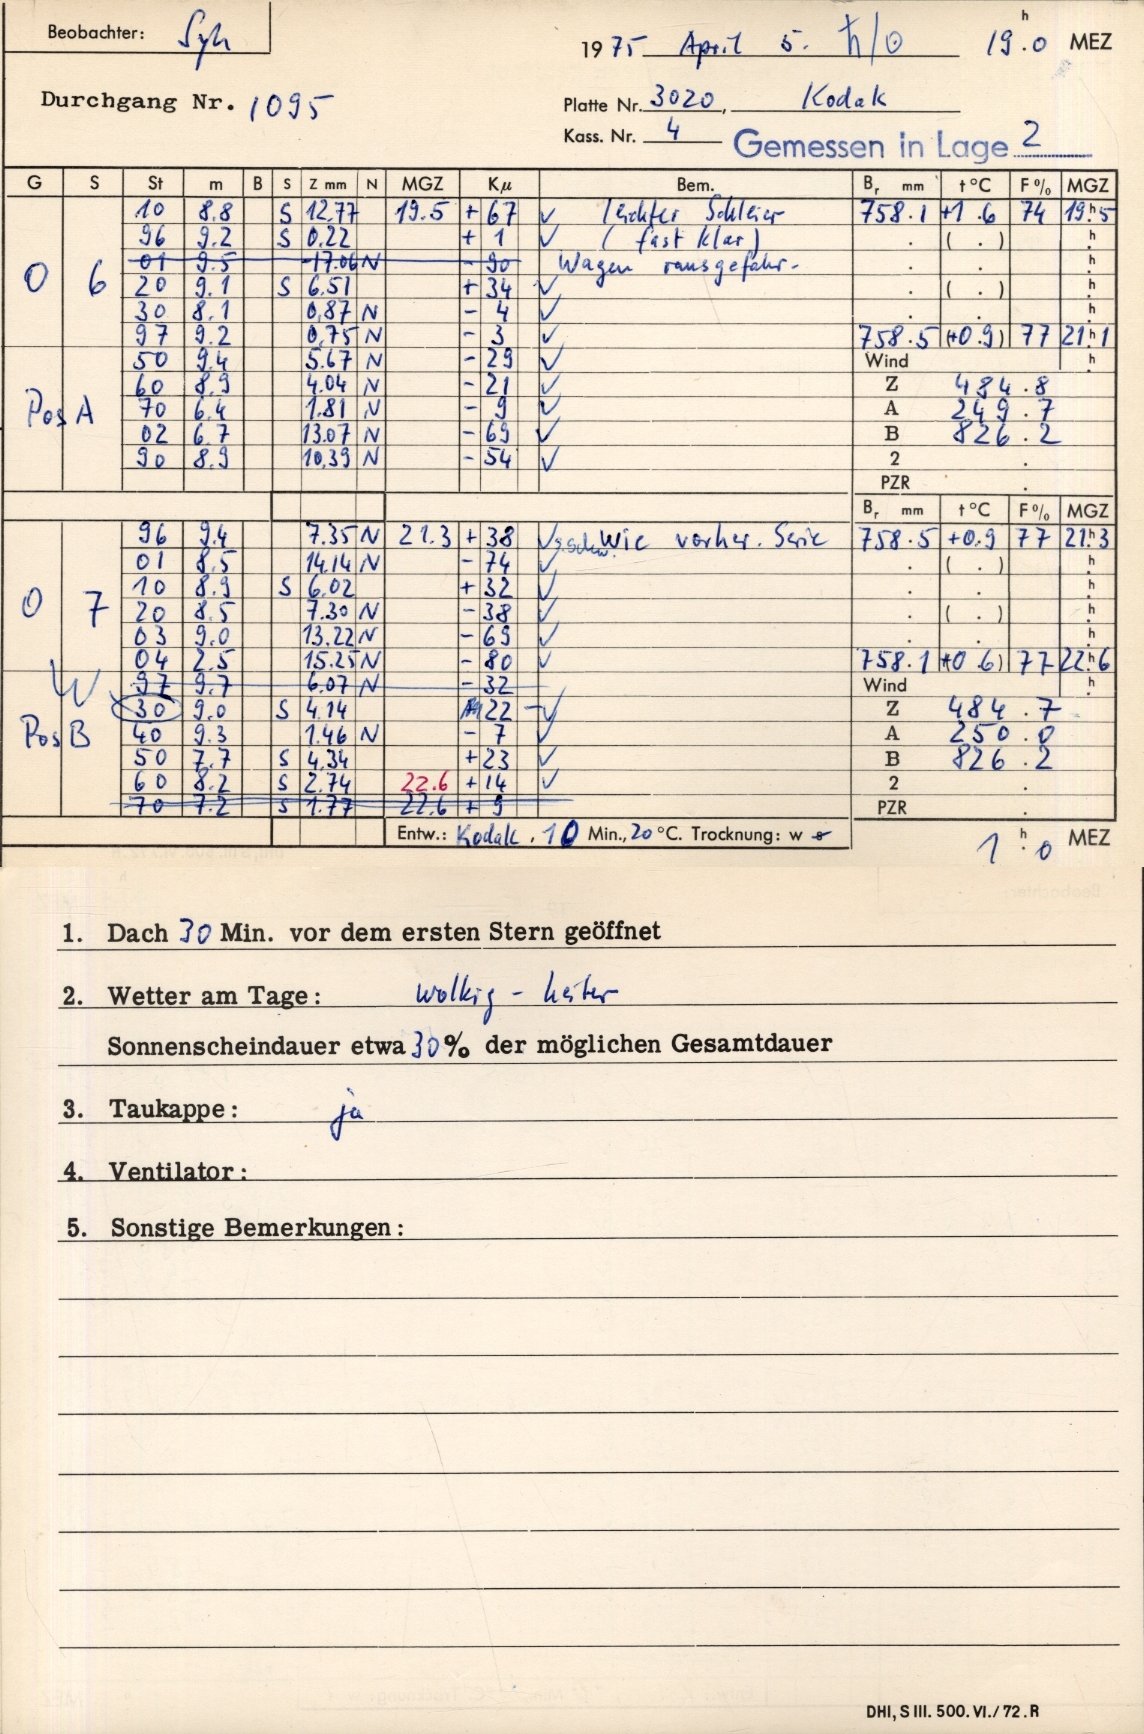 Beobachter: Syh
1975 April 5. ♄/☉ 19 h . 0 MEZ
Durchgang Nr. 1095
Platte Nr. 3020, Kodak
Kass. Nr. 4 Gemessen in Lage 2
G S St m B S Z mm N MGZ Kμ Bem. Br mm t °C F % MGZ
10 8.8 S 12.77 19.5 + 67 ✓ leichter Schleier 758.1 +1.6 74 19h5
96 9.2 S 0.22 + 1 ✓ (fast klar) . ( . ) h
01 9.5 -17.06 N - 90 Wagen rausgefahr. . . h
0 6 20 9.1 S 6.51 + 34 ✓ . ( . ) h
30 8.1 0.87 N - 4 ✓ . . h
97 9.2 0.75 N - 3 ✓ 758.5 (+0.9) 77 21h1
50 9.4 5.67 N - 29 ✓ Wind h
60 8.9 4.04 N - 21 ✓ Z 484.8
Pos A 70 6.4 1.81 N - 9 ✓ A 249.7
02 6.7 13.07 N - 69 ✓ B 826.2
90 8.9 10.39 N - 54 ✓ 2 .
PZR .
Br mm t °C F % MGZ
96 9.4 7.35 N 21.3 + 38 ✓ s. schw. Wie vorher. Serie 758.5 +0.9 77 21h3
01 8.5 14.14 N - 74 ✓ . ( . ) h
10 8.9 S 6.02 + 32 ✓ . . h
0 7 20 8.5 7.30 N - 38 ✓ . ( . ) h
03 9.0 13.22 N - 69 ✓ . . h
04 2.5 15.25 N - 80 ✓ 758.1 (+0.6) 77 22h6
W 97 9.7 6.07 N - 32 Wind h
30 9.0 S 4.14 22 ✓ Z 484.7
Pos B 40 9.3 1.46 N - 7 ✓ A 250.0
50 7.7 S 4.34 + 23 ✓ B 826.2
60 8.2 S 2.74 22.6 + 14 ✓ 2 .
70 7.2 S 1.77 22.6 + 9 PZR .
Entw.: Kodak . 10 Min., 20 °C. Trocknung: w s
1 h . 0 MEZ
1. Dach 30 Min. vor dem ersten Stern geöffnet
2. Wetter am Tage: wolkig - heiter
Sonnenscheindauer etwa 30% der möglichen Gesamtdauer
3. Taukappe: ja
4. Ventilator:
5. Sonstige Bemerkungen:
DHI, S III. 500. VI./72. R